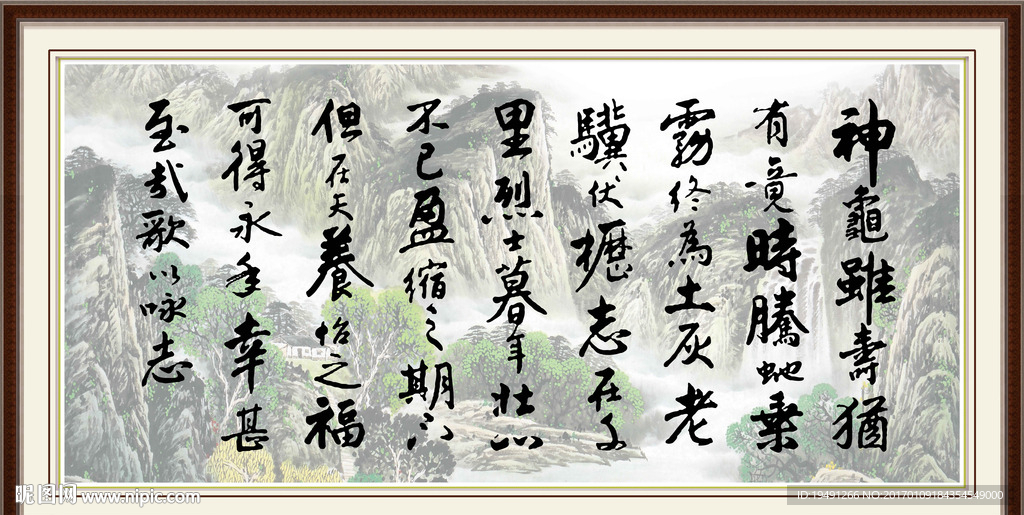 神龜雖壽猶
有竟時騰虵乘
霧終為土灰老
驥伏櫪志在千
里烈士暮年壯心
不已盈縮之期不
但在天養怡之福
可得永年幸甚
至哉歌以咏志
昵图网 www.nipic.com
ID:19491266 NO.20170109184354549000